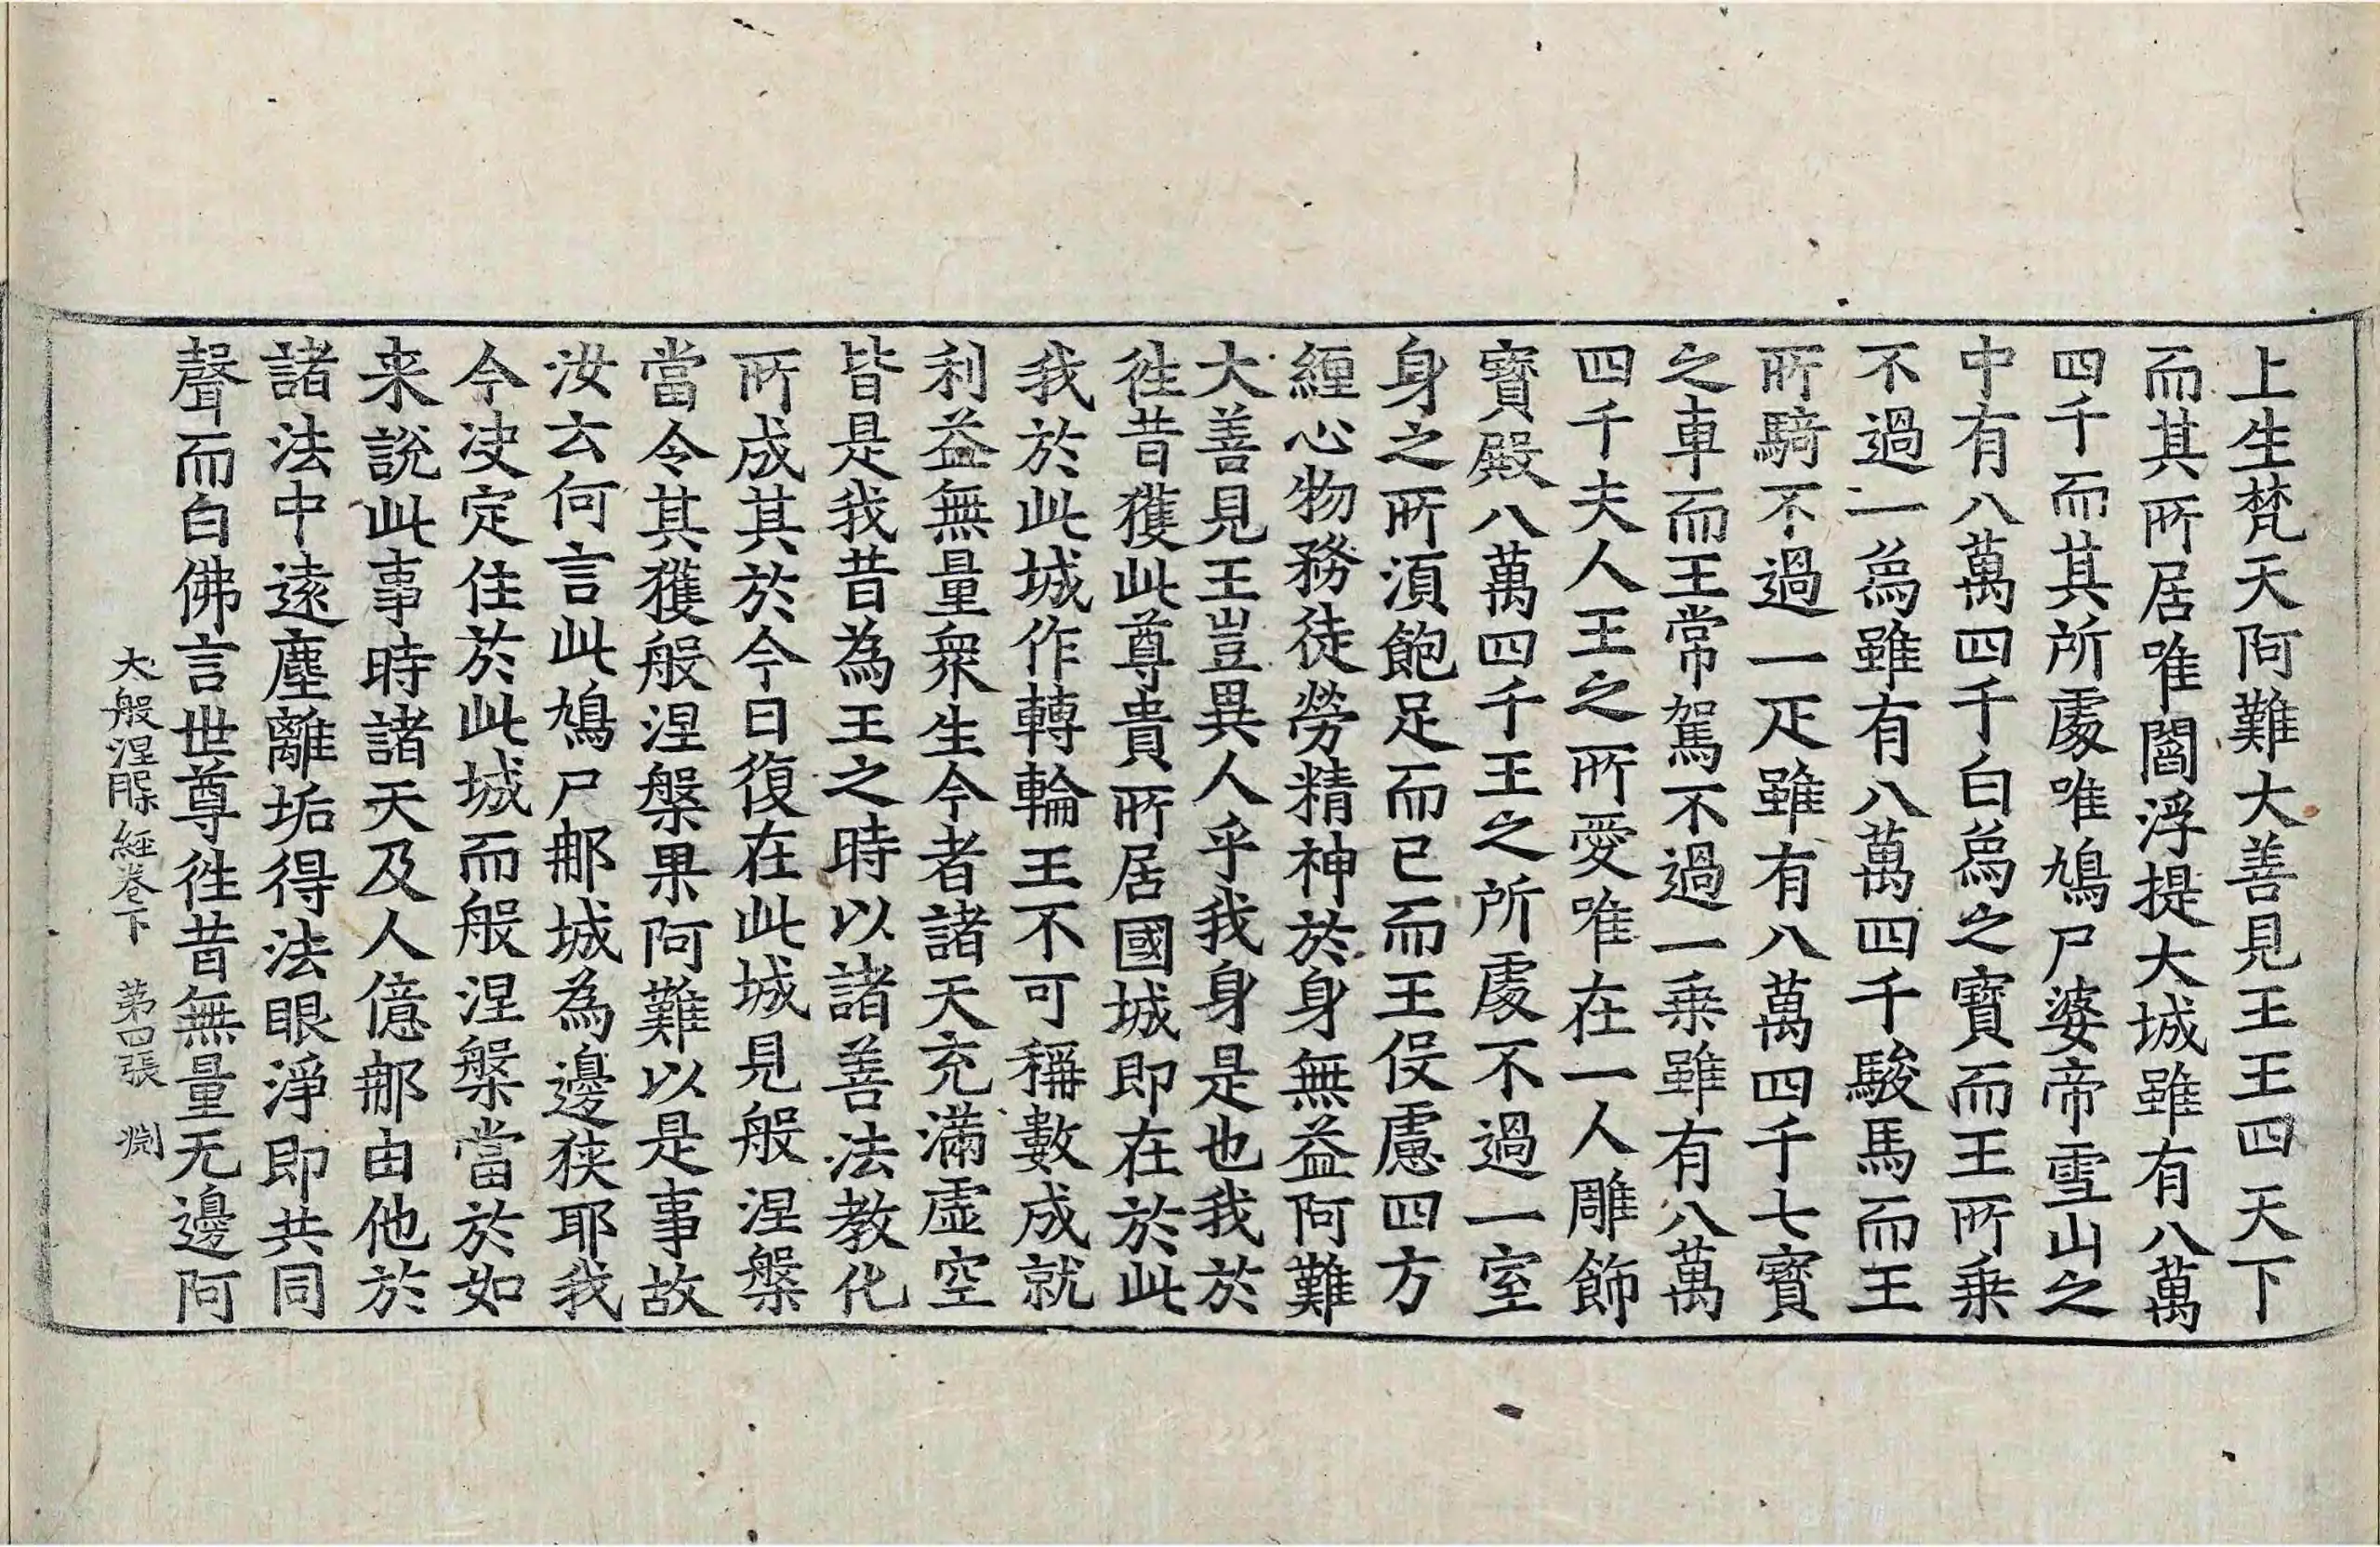 上生梵天阿難大善見王王四天下
而其所居唯閻浮提大城雖有八萬
四千而其所處唯鳩尸婆帝雪山之
中有八萬四千白象之寶而王所乗
不過一象雖有八萬四千駿馬而王
所騎不過一疋雖有八萬四千七寶
之車而王常駕不過一乗雖有八萬
四千夫人王之所愛唯在一人雕飾
寶殿八萬四千王之所處不過一室
身之所須飽足而已而王役慮四方
緾心物務徒勞精神於身無益阿難
大善見王豈異人乎我身是也我於
徃昔獲此尊貴所居國城即在於此
我於此城作轉輪王不可稱數成就
利益無量衆生今者諸天充滿虛空
皆是我昔為王之時以諸善法教化
所成其於今日復在此城見般涅槃
當令其獲般涅槃果阿難以是事故
汝云何言此鳩尸那城為邊狹耶我
今決定住於此城而般涅槃當於如
来說此事時諸天及人億那由他於
諸法中遠塵離垢得法眼淨即共同
聲而白佛言世尊徃昔無量无邊阿
大般涅槃經卷下　第四張